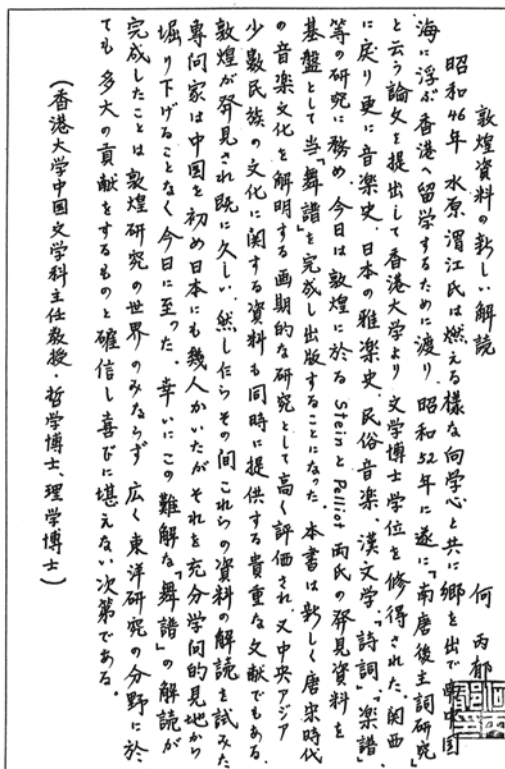 敦煌資料の新しい解読
何丙郁
昭和46年 水原渭江氏は燃える様な向学心と共に郷を出で南中国
海に浮ぶ香港へ留学するために渡り、昭和52年に遂に「南唐後主詞研究」
と云う論文を提出して香港大学より文学博士学位を修得された。関西
に戻り更に音楽史、日本の雅楽史、民俗音楽、漢文学、「詩詞」、「楽譜」
等の研究に務め、今日は敦煌に於る Stein と Pelliot 両氏の発見資料を
基盤として当「舞譜」を完成し出版することになった。本書は新しく唐宋時代
の音楽文化を解明する画期的な研究として高く評価され、又中央アジア
少数民族の文化に関する資料も同時に提供する貴重な文献でもある。
敦煌が発見され既に久しい、然し乍らその間これらの資料の解読を試みた
専問家は中国を初め日本にも幾人かいたがそれを充分学問的見地から
堀り下げることなく今日に至った。幸いにこの難解な「舞譜」の解読が
完成したことは敦煌研究の世界のみならず広く東洋研究の分野に於
ても多大の貢献をするものと確信し喜びに堪えない次第である。
(香港大学中国文学科主任教授・哲学博士、理学博士)